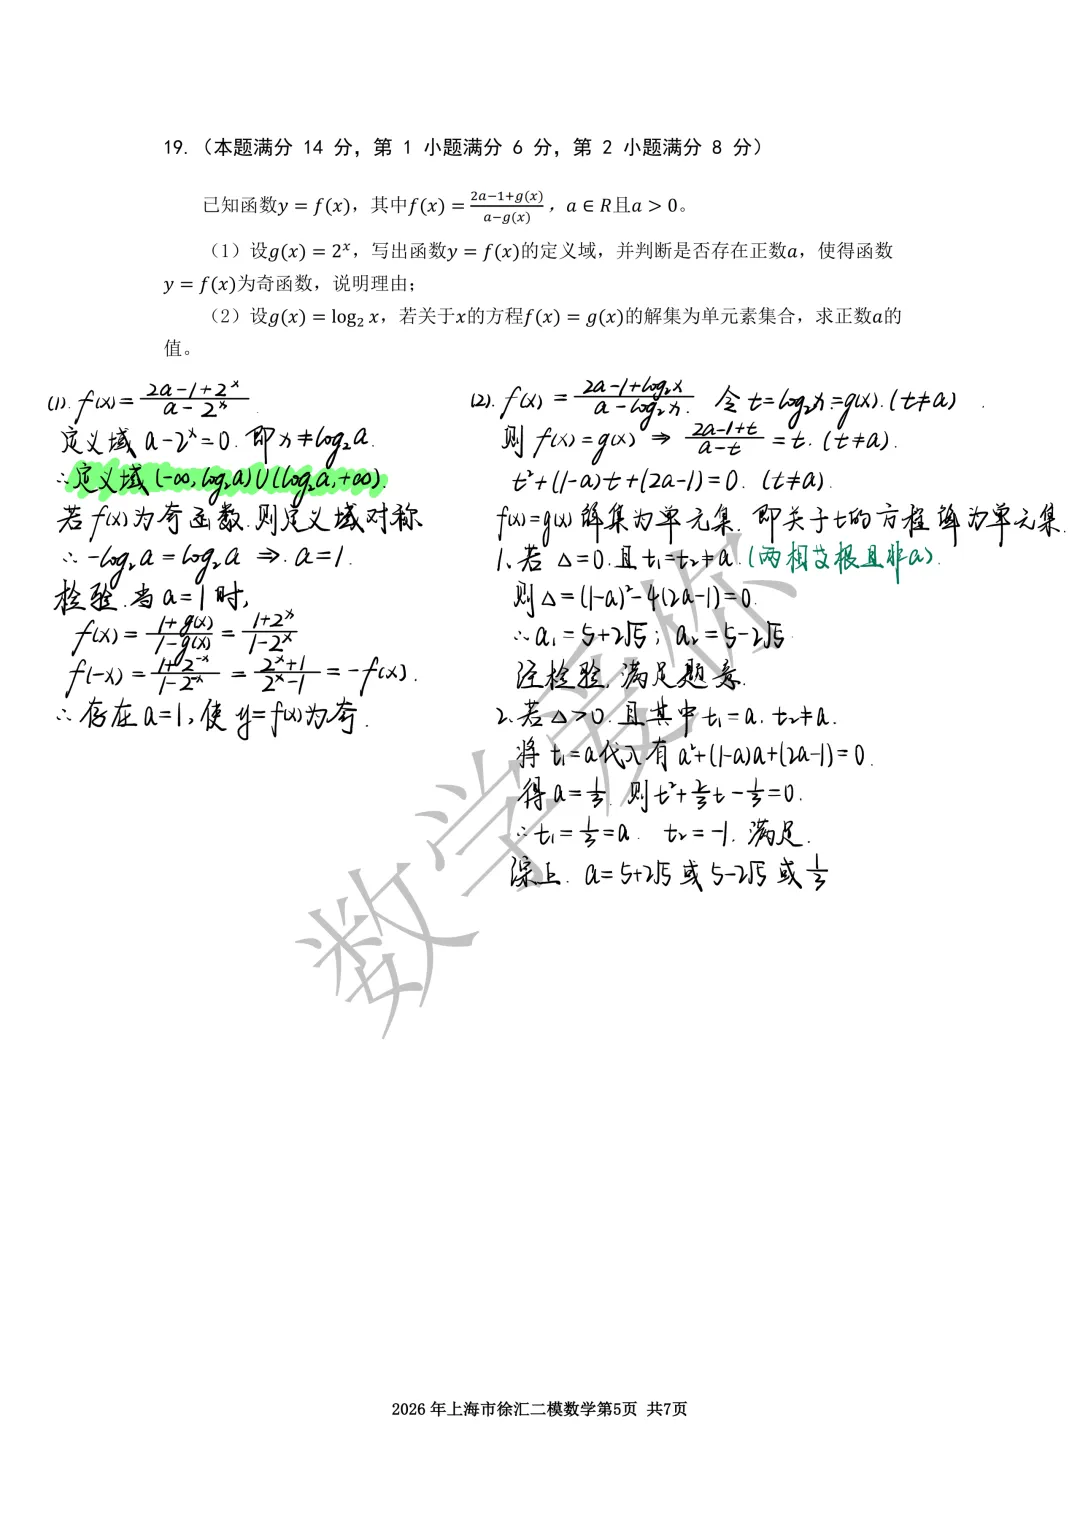 19.（本题满分 14 分，第 1 小题满分 6 分，第 2 小题满分 8 分）
已知函数y = f(x)，其中f(x) = \frac{2a−1+g(x)}{a−g(x)}，a ∈ R且a > 0。
（1）设g(x) = 2^x，写出函数y = f(x)的定义域，并判断是否存在正数a，使得函数
y = f(x)为奇函数，说明理由；
（2）设g(x) = log₂ x，若关于x的方程f(x) = g(x)的解集为单元素集合，求正数a的
值。
(1). f(x) = \frac{2a-1+2^x}{a-2^x}.
定义域 a-2^x=0. 即 x≠log₂a.
∴定义域 (-∞, log₂a)∪(log₂a, +∞).
若 f(x)为奇函数. 则定义域对称
∴ -log₂a = log₂a ⇒. a=1.
检验. 当 a=1 时,
f(x) = \frac{1+g(x)}{1-g(x)} = \frac{1+2^x}{1-2^x}
f(-x) = \frac{1+2^{-x}}{1-2^{-x}} = \frac{2^x+1}{2^x-1} = -f(x).
∴ 存在 a=1, 使 y=f(x)为奇.
(2). f(x) = \frac{2a-1+log₂x}{a-log₂x}. 令 t=log₂x=g(x). (t≠a).
则 f(x)=g(x) ⇒ \frac{2a-1+t}{a-t} = t. (t≠a).
t²+(1-a)t+(2a-1)=0. (t≠a).
f(x)=g(x) 解集为单元集. 即关于t的方程解为单元集.
1. 若 Δ=0. 且 t₁=t₂≠a. (两相艾根且非a).
则Δ=(1-a)²-4(2a-1)=0.
∴ a₁=5+2√5; a₂=5-2√5
经检验, 满足题意.
2. 若 Δ>0. 且其中 t₁=a. t₂≠a.
将 t₁=a代入有 a²+(1-a)a+(2a-1)=0.
得 a=\frac{1}{3}. 则 t²+\frac{2}{3}t-\frac{1}{3}=0.
∴ t₁=\frac{1}{3}=a. t₂=-1. 满足.
综上. a=5+2√5 或 5-2√5 或 \frac{1}{3}
数学爱你
2026 年上海市徐汇二模数学第5页 共7页